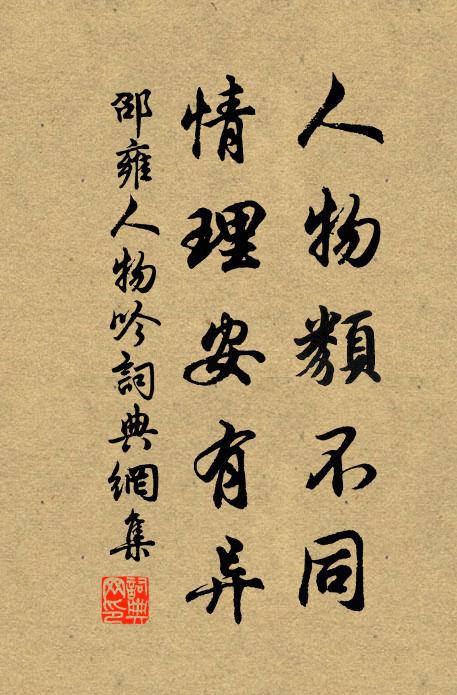 人物類不同
情理安有异
邵雍人物吟詞典網集
詞典網印